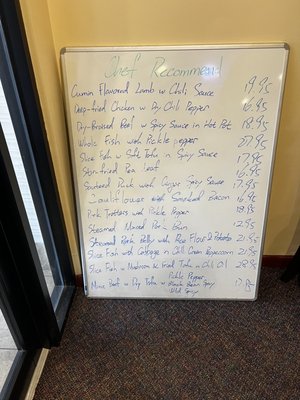 Chef Recommend
Cumin Flavored Lamb w Chili Sauce 19.95
Deep-fried Chicken w Dry Chili Pepper 16.95
Dry-Braised Beef w Spicy Sauce in Hot Pot 18.95
Whole Fish with Pickle pepper 27.95
Slice Fish w Soft Tofu in Spicy Sauce 17.95
Stir-fried Pea Leaf 16.95
Sauteed Duck with Ginger Spicy Sauce 17.95
Cauliflower with Smoked Bacon 16.95
Pork Trotters with Pickle Pepper 18.95
Steamed Minced Pork Bun 12.95
Steamed Pork Belly with Rice Flour & Potatoes 21.95
Slice Fish with Cabbage in Chili Green Peppercorn 21.95
Slice Fish w Mushroom & Fried Tofu in Chili Oil 28.95
Pickle Pepper
Mince Beef w Dry Tofu w Black Bean Spicy 17.95
Wild Spicy